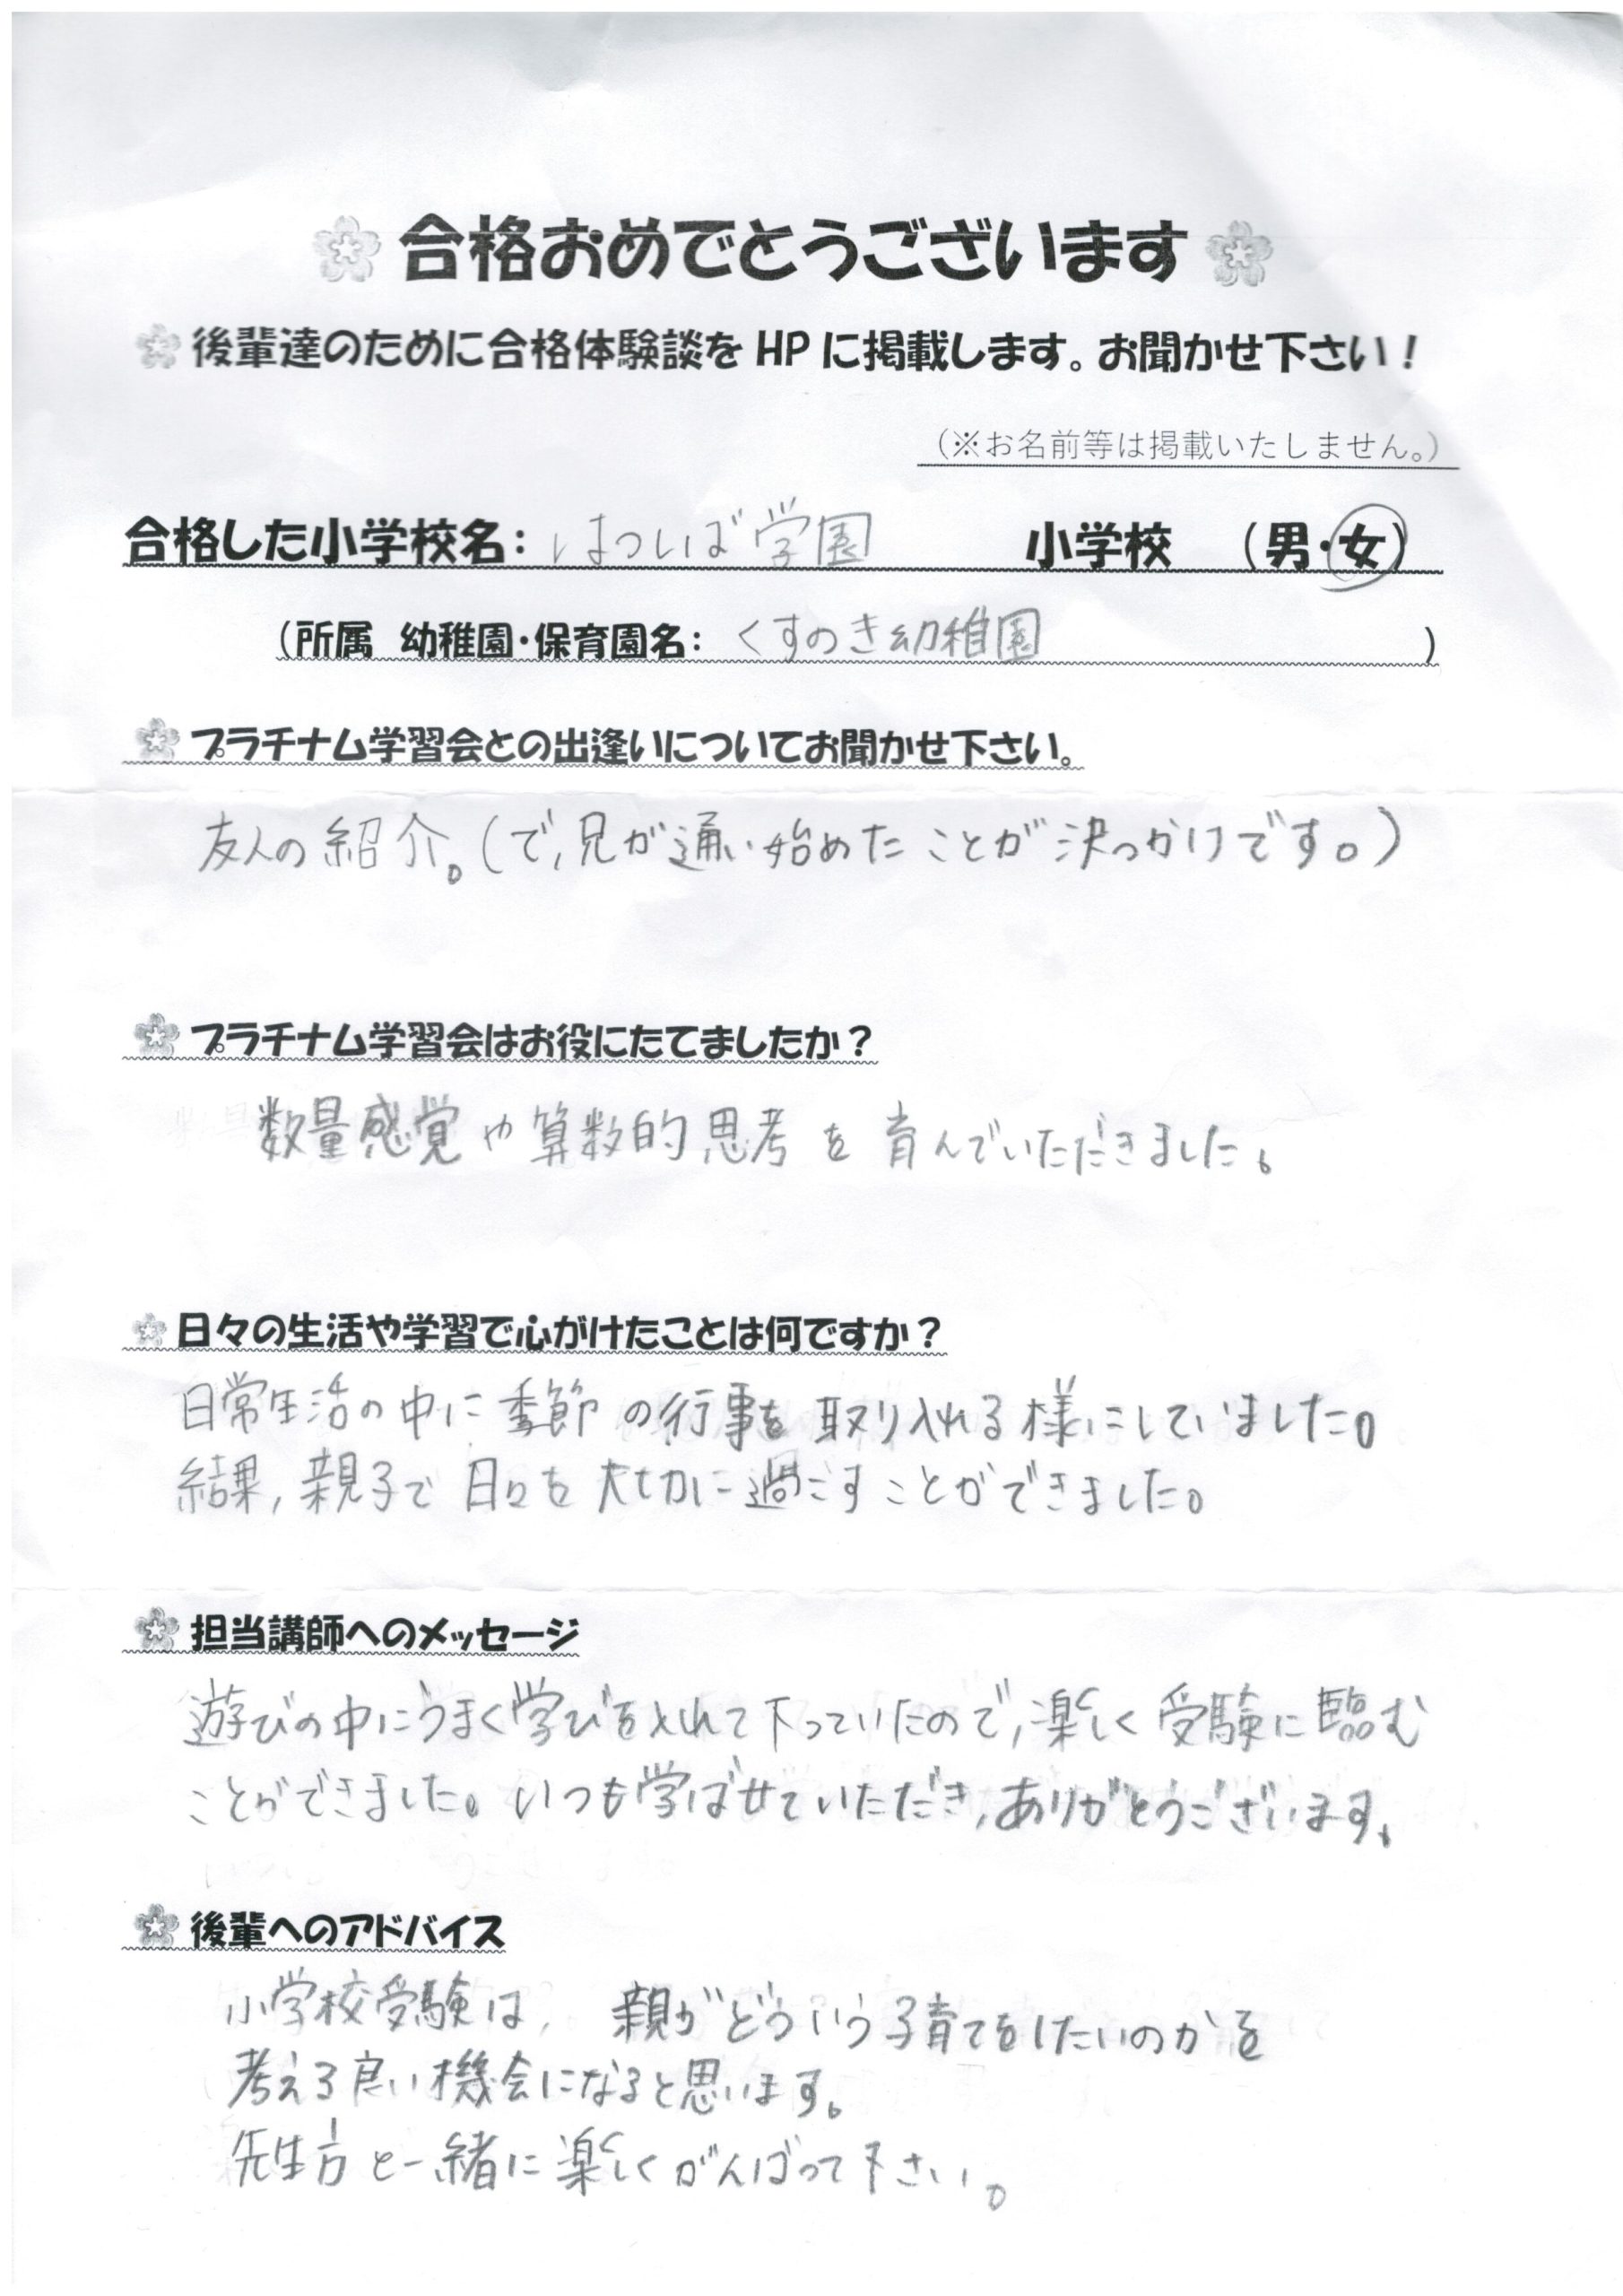 合格おめでとうございます
後輩達のために合格体験談をHPに掲載します。お聞かせ下さい！
（※お名前等は掲載いたしません。）
合格した小学校名：はつしば学園 小学校 （男・女）
（所属 幼稚園・保育園名：くすのき幼稚園 ）
プラチナム学習会との出逢いについてお聞かせ下さい。
友人の紹介。（で，兄が通い始めたことが決っかけです。）
プラチナム学習会はお役にたてましたか？
数量感覚や算数的思考を育んでいただきました。
日々の生活や学習で心がけたことは何ですか？
日常生活の中に季節の行事を取り入れる様にしていました。
結果，親子で日々を大切に過ごすことができました。
担当講師へのメッセージ
遊びの中にうまく学びを入れて下っていたので，楽しく受験に臨む
ことができました。いつも学ばせていただき，ありがとうございます。
後輩へのアドバイス
小学校受験は，親がどういう子育てをしたいのかを
考える良い機会になると思います。
先生方と一緒に楽しくがんばって下さい。